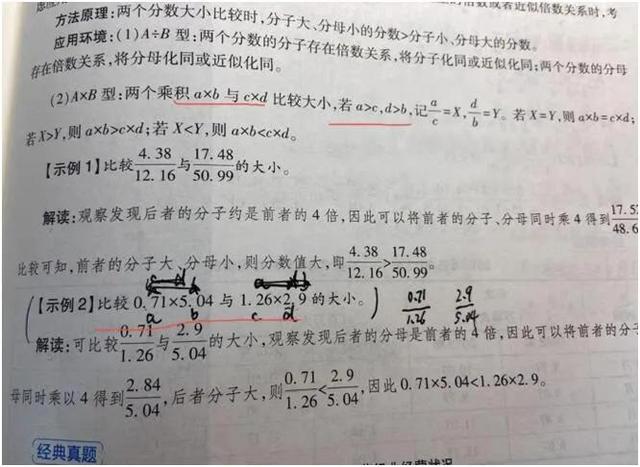 数或者近似倍数关系时,考
方法原理:两个分数大小比较时,分子大、分母小的分数>分子小、分母大的分数。
应用环境:(1)A÷B 型:两个分数的分子存在倍数关系,将分子化同或近似化同;两个分数的分母
存在倍数关系,将分母化同或近似化同。
(2)A×B 型:两个乘积 a×b 与 c×d 比较大小,若 a>c,d>b,记a/c=X,d/b=Y。若 X=Y,则 a×b=c×d;
若X>Y,则 a×b>c×d;若 X<Y,则 a×b<c×d。
【示例 1】比较4.38/12.16与17.48/50.99的大小。
解读:观察发现后者的分子约是前者的 4 倍,因此可以将前者的分子、分母同时乘 4 得到17.52/48.6
比较可知,前者的分子大、分母小,则分数值大,即4.38/12.16>17.48/50.99。
(【示例 2】比较 0.71×5.04 与 1.26×2.9 的大小。) 0.71/1.26 2.9/5.04
a b c d
解读:可比较0.71/1.26与2.9/5.04的大小,观察发现后者的分母是前者的 4 倍,因此可以将前者的分子
母同时乘以 4 得到2.84/5.04,后者分子大,则0.71/1.26<2.9/5.04,因此 0.71×5.04<1.26×2.9。
经典真题